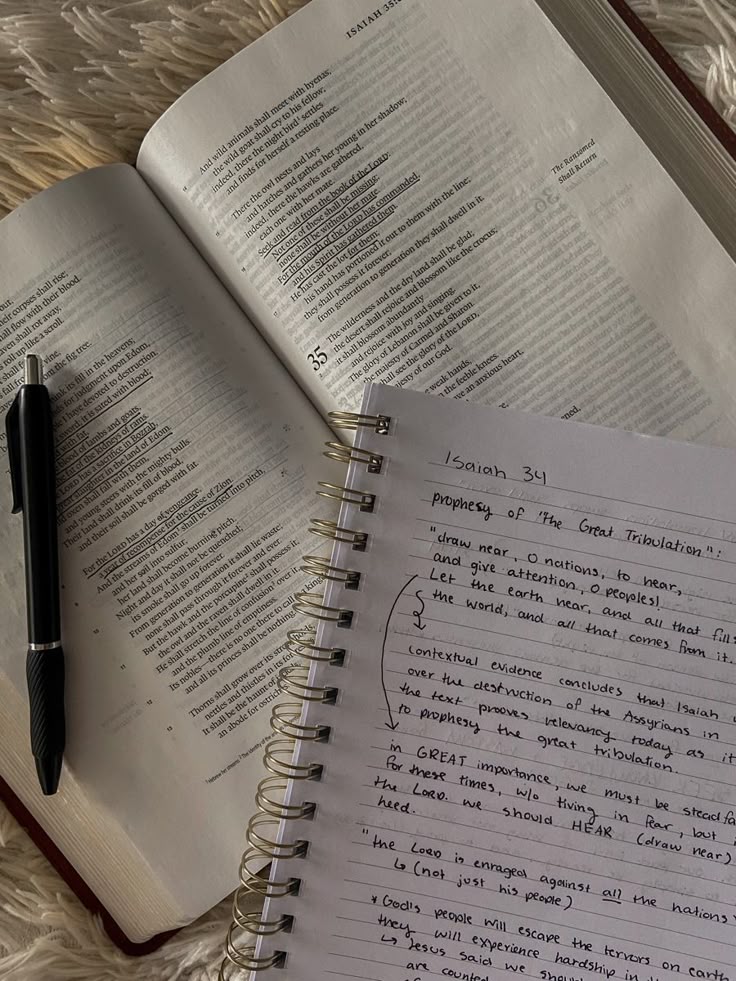 their corpses shall rise;
shall flow with their blood.
shall rot away,
roll up like a scroll.
the fig tree.
drink its fill in the heavens;
for judgment upon Edom,
I have devoted to destruction.
it is sated with blood;
with fat,
blood of lambs and goats,
fat of the kidneys of rams.
LORD has a sacrifice in Bozrah,
great slaughter in the land of Edom.
oxen shall fall with them,
and young steers with the mighty bulls.
Their land shall drink its fill of blood,
and their soil shall be gorged with fat.
For the LORD has a day of vengeance,
a year of recompense for the cause of Zion.
And the streams of Edom shall be turned into pitch,
and her soil into sulfur;
her land shall become burning pitch.
Night and day it shall not be quenched;
its smoke shall go up forever.
From generation to generation it shall lie waste;
none shall pass through it forever and ever.
But the hawk and the porcupine shall possess it,
the owl and the raven shall dwell in it.
He shall stretch the line of confusion over it,
and the plumb line of emptiness.
Its nobles—there is no one there to call
and all its princes shall be nothing.
Thorns shall grow over its
nettles and thistles in its
It shall be the haunt of
an abode for ostriches.
ISAIAH 35:
And wild animals shall meet with hyenas;
the wild goat shall cry to his fellow;
indeed, there the night bird settles
and finds for herself a resting place.
There the owl nests and lays
and hatches and gathers her young in her shadow;
indeed, there the hawks are gathered,
each one with her mate.
Seek and read from the book of the LORD:
Not one of these shall be missing;
none shall be without her mate.
For the mouth of the LORD has commanded,
and his Spirit has gathered them.
He has cast the lot for them;
his hand has portioned it out to them with the line;
they shall possess it forever;
from generation to generation they shall dwell in it.
The Ransomed
Shall Return
35 The wilderness and the dry land shall be glad;
the desert shall rejoice and blossom like the crocus;
it shall blossom abundantly
and rejoice with joy and singing.
The glory of Lebanon shall be given to it,
the majesty of Carmel and Sharon.
shall see the glory of the LORD,
majesty of our God.
weak hands,
the feeble knees.
have an anxious heart,
Isaiah 34
prophesy of "The Great Tribulation":
"draw near, O nations, to hear,
and give attention, O peoples!
Let the earth hear, and all that fills
the world, and all that comes from it.
contextual evidence concludes that Isaiah
over the destruction of the Assyrians in
the text prooves relevancy today as it
to prophesy the great tribulation.
in GREAT importance, we must be steadfa
for these times, w/o living in fear, but
the LORD. we should HEAR (draw near)
heed.
"the LORD is enraged against all the nations
↳ (not just his people)
* God's people will escape the terrors on earth
they will experience hardship in
↳ Jesus said we shou
are counted